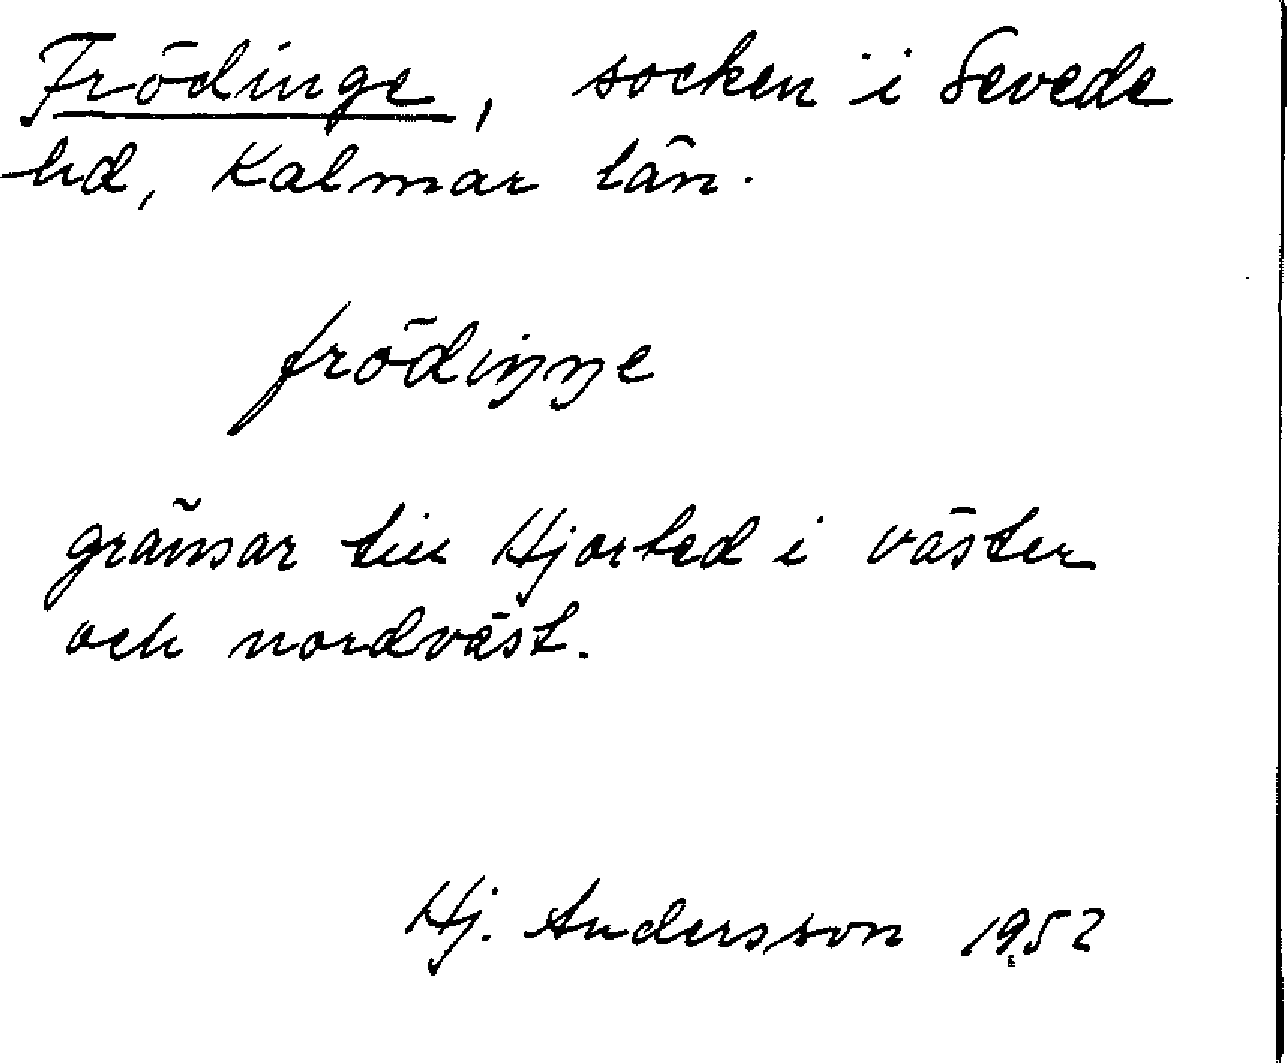 Frödinge, socken i Sevede
hd, Kalmar län.
frödiŋŋe
gränsar till Hjorted i väster
och nordväst.
Hj. Andersson 1952